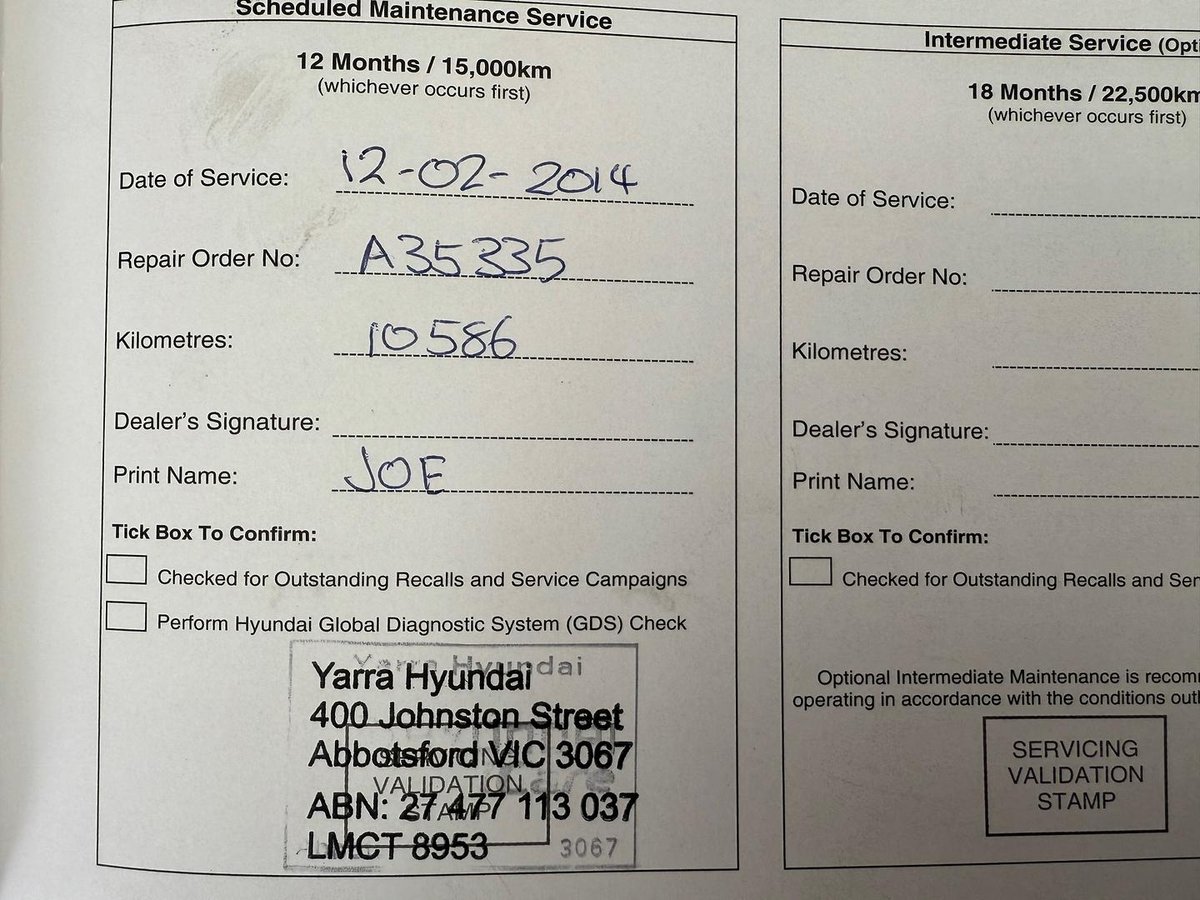 Scheduled Maintenance Service
12 Months / 15,000km
(whichever occurs first)
Date of Service: 12-02-2014
Repair Order No: A35335
Kilometres: 10586
Dealer's Signature:
Print Name: JOE
Tick Box To Confirm:
Checked for Outstanding Recalls and Service Campaigns
Perform Hyundai Global Diagnostic System (GDS) Check
Yarra Hyundai
Yarra Hyundai
400 Johnston Street
Abbotsford VIC 3067
VALIDATION
ABN: 27 477 113 037
LMCT 8953
3067
Intermediate Service
18 Months / 22,500km
(whichever occurs first)
Date of Service:
Repair Order No:
Kilometres:
Dealer's Signature:
Print Name:
Tick Box To Confirm:
Checked for Outstanding Recalls and
Optional Intermediate Maintenance is
operating in accordance with the conditions
SERVICING
VALIDATION
STAMP